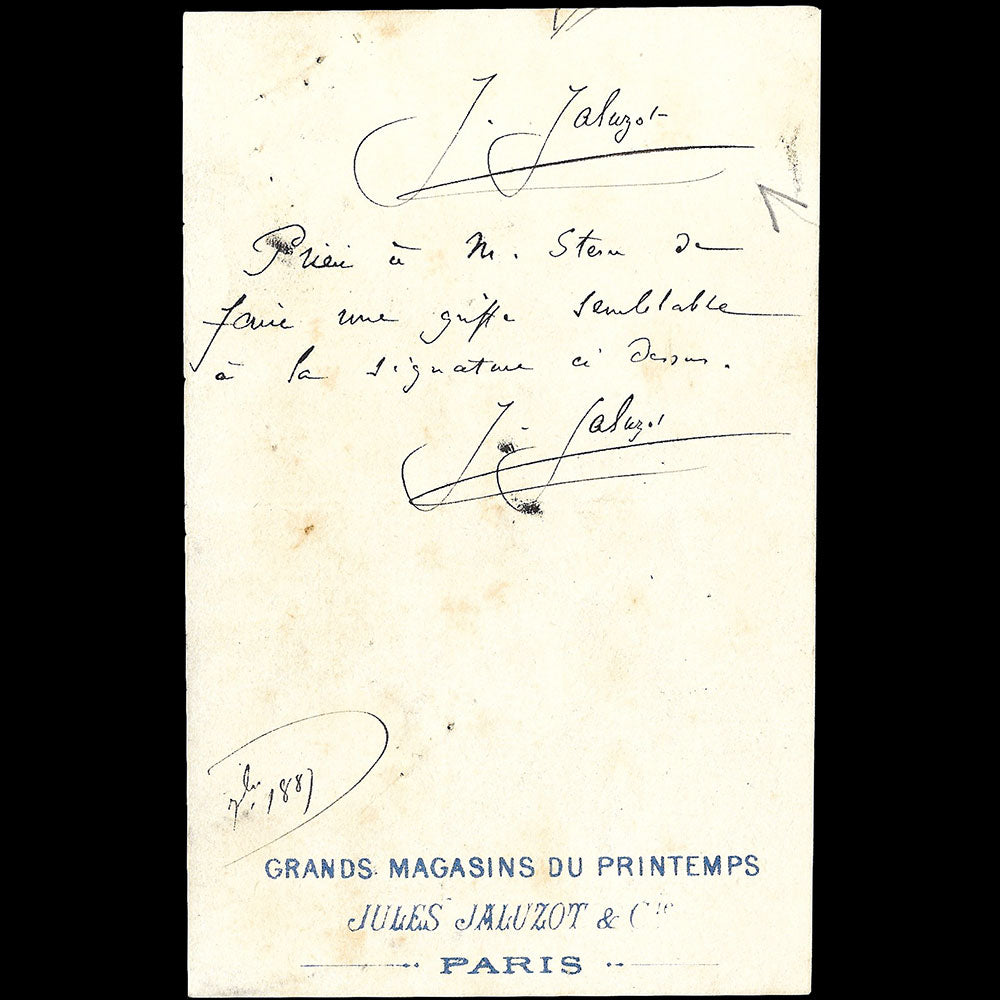 J. Jaluzot
Prière à M. Stern de
faire une griffe semblable
à la signature ci dessus.
J. Jaluzot
7bre 1887
GRANDS MAGASINS DU PRINTEMPS
JULES JALUZOT & Cie
PARIS